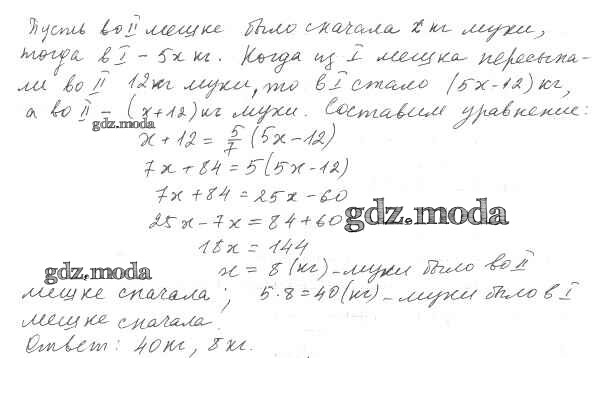 Пусть во II мешке было сначала x кг муки,
тогда в I – 5x кг. Когда из I мешка пересыпа-
ли во II 12кг муки, то в I стало (5x-12) кг,
а во II – (x+12) кг муки. Составим уравнение:
gdz.moda
x + 12 = 5/7 (5x - 12)
7x + 84 = 5 (5x - 12)
7x + 84 = 25x - 60
25x - 7x = 84 + 60
gdz.moda
18x = 144
gdz.moda
x = 8 (кг) – муки было во II
мешке сначала; 5·8=40(кг) – муки было в I
мешке сначала.
Ответ: 40кг, 8кг.